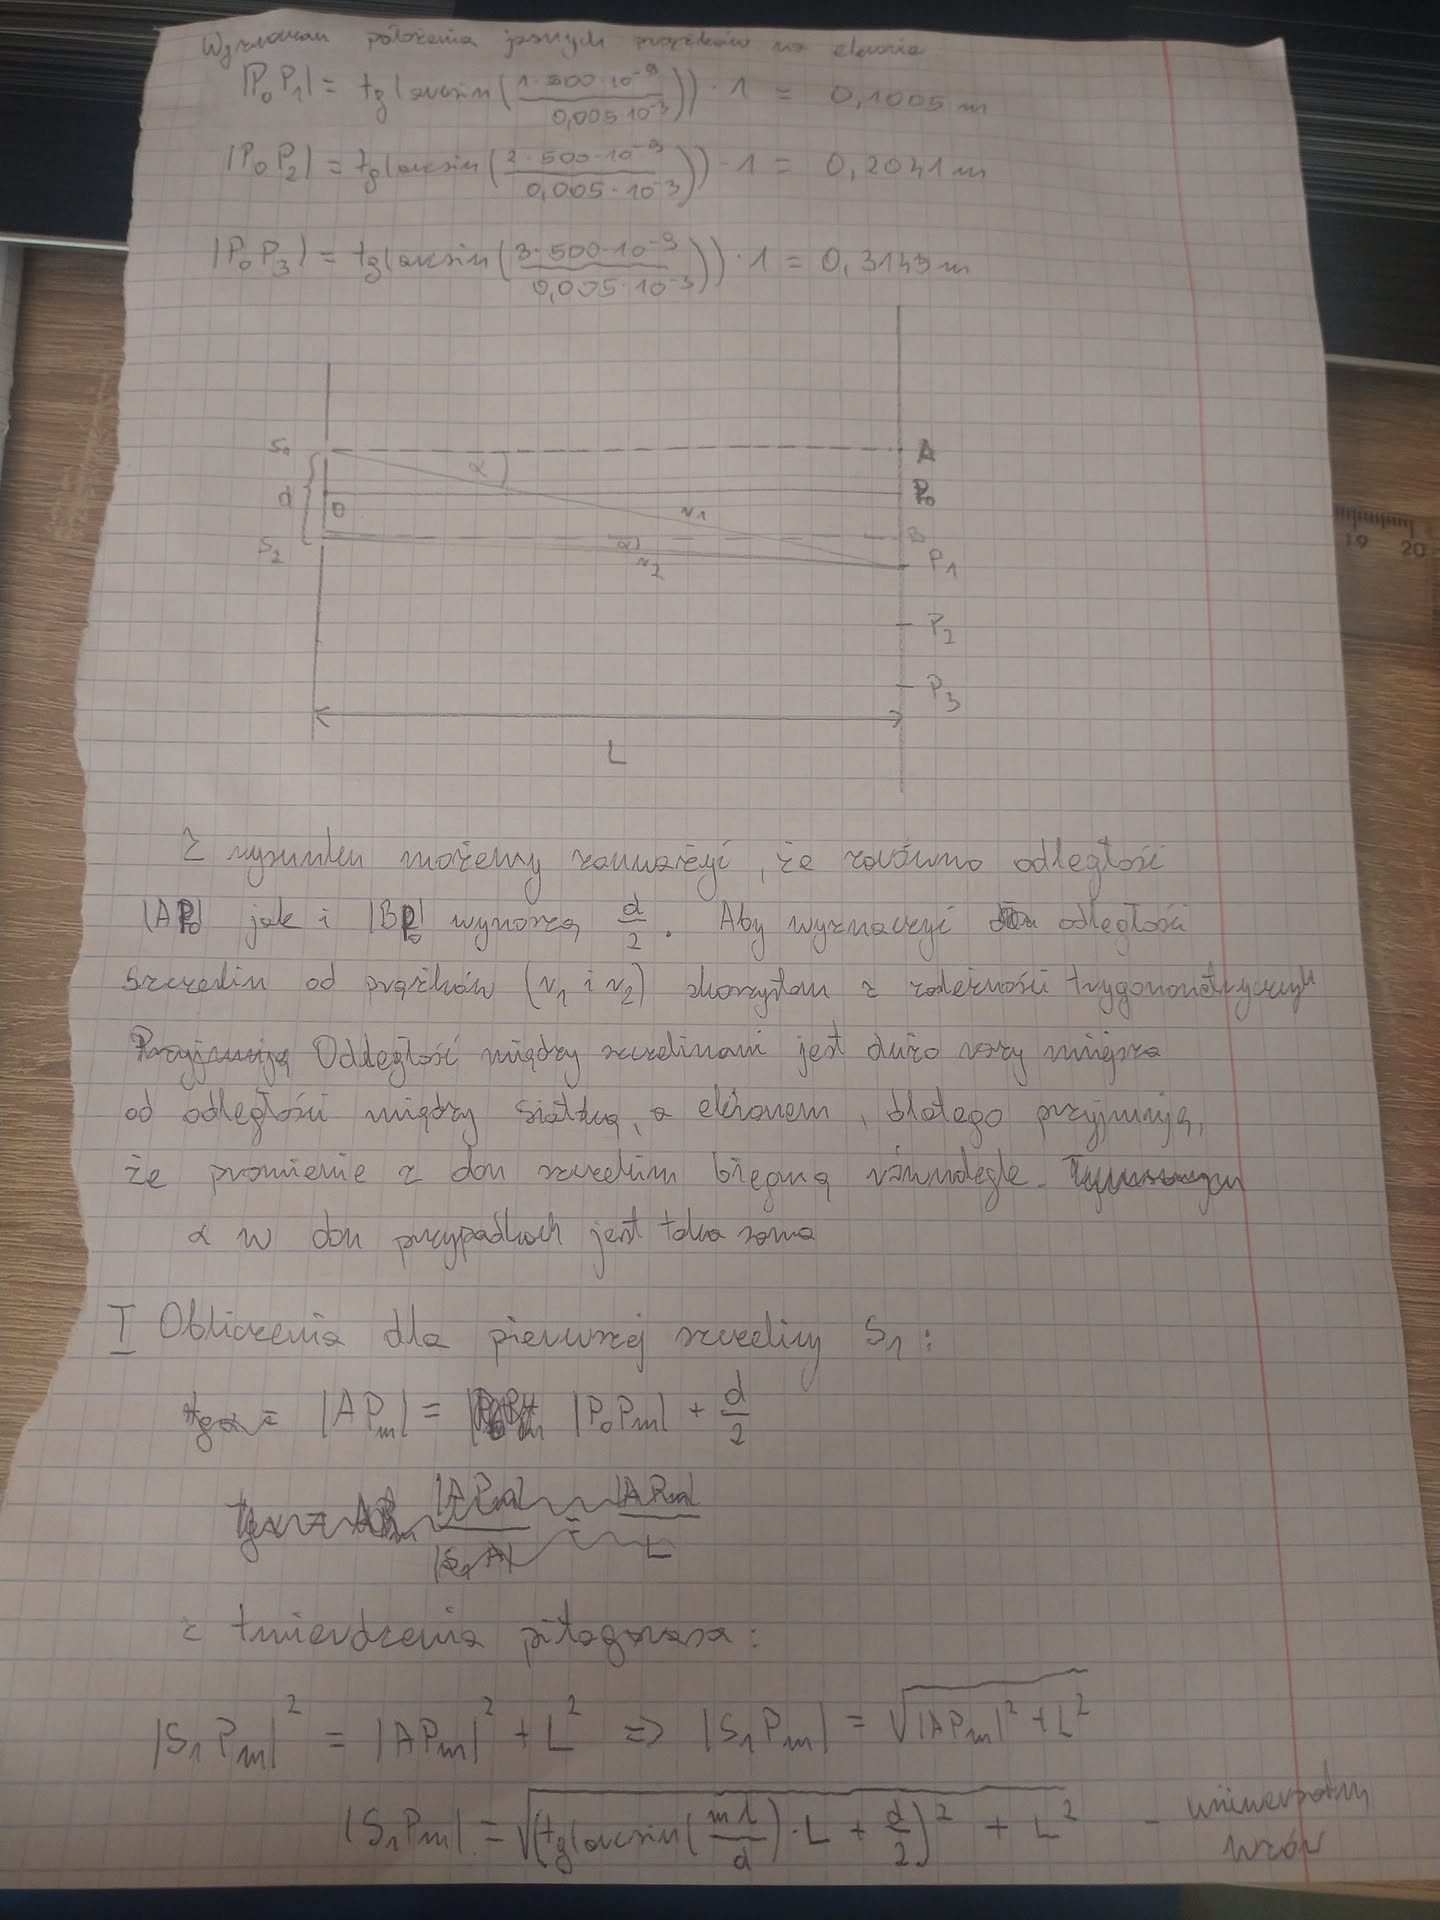 Wyznaczam położenia jasnych prążków na ekranie
|P₀P₁| = tg(arcsin(1·500·10⁻⁹/0,005·10⁻³))·1 = 0,1005 m
|P₀P₂| = tg(arcsin(2·500·10⁻⁹/0,005·10⁻³))·1 = 0,2041 m
|P₀P₃| = tg(arcsin(3·500·10⁻⁹/0,005·10⁻³))·1 = 0,3145 m
S₁ α A
d O P₀
r₁
S₂ α B
r₂ P₁
P₂
P₃
L
19 20
Z rysunku możemy zauważyć, że zarówno odległości
|AP₀| jak i |BP₀| wynoszą d/2. Aby wyznaczyć odległości
szczelin od prążków (r₁ i r₂) skorzystam z zależności trygonometrycznych
Odległość między szczelinami jest dużo razy mniejsza
od odległości między siatką, a ekranem, dlatego przyjmuję,
że promienie z dwu szczelin biegną równolegle.
α w dwu przypadkach jest taka sama
I Obliczenia dla pierwszej szczeliny S₁:
tgα = |APₘ| = |P₀Pₘ| + d/2
tgα = |APₘ|/|S₁A| = |APₘ|/L
z twierdzenia pitagorasa:
|S₁Pₘ|² = |APₘ|² + L² => |S₁Pₘ| = √(|APₘ|² + L²)
|S₁Pₘ| = √((tg(arcsin(mλ/d)·L + d/2)² + L²) - uniwersalny
wzór